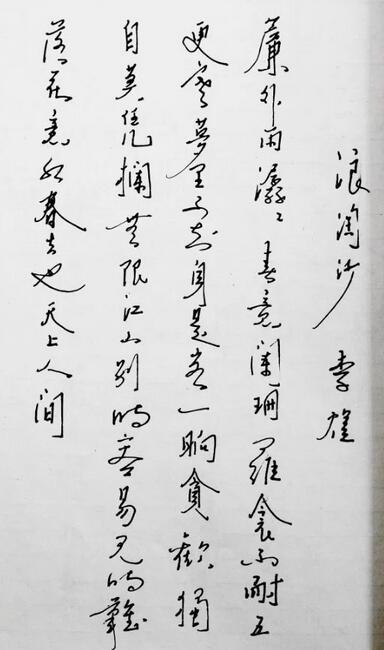 浪淘沙 李煜
簾外雨潺潺 春意闌珊 羅衾不耐五
更寒夢里不知身是客一晌貪歡獨
自莫凭欄無限江山別時容易見時難
落花水春去也天上人間